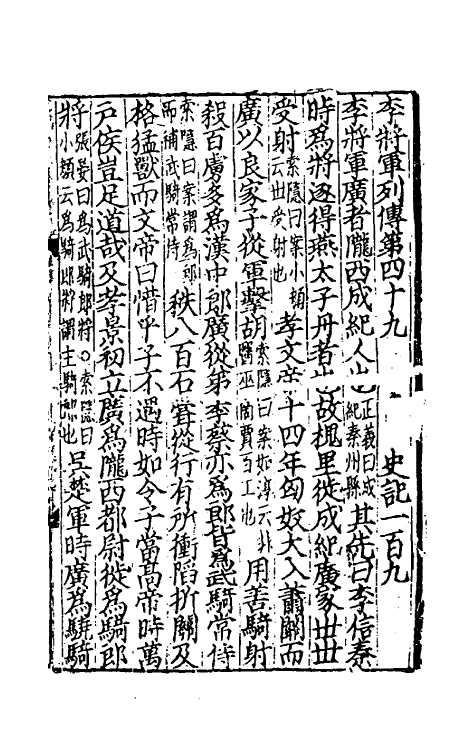 李將軍列傳第四十九　史記一百九
李將軍廣者隴西成紀人也正義曰成紀秦州縣其先曰李信秦
時爲將逐得燕太子丹者也故槐里徙成紀廣家世世
受射索隱曰案小顔云世受射也孝文帝十四年匈奴大入蕭關而
廣以良家子從軍擊胡索隱曰案如淳云非醫巫商賈百工也用善騎射
殺百虜多爲漢中郎廣從第李蔡亦爲郎皆爲武騎常侍
索隱曰案謂爲郎而補武騎常侍秩八百石甞從行有所衝陷折關及
格猛獸而文帝曰惜乎子不遇時如令子當髙帝時萬
戸侯豈足道哉及孝景初立廣爲隴西都尉徙爲騎郎
將張晏曰爲武騎郎將○索隱曰小顔云爲騎郎將謂主騎郎也吳楚軍時廣爲驍騎